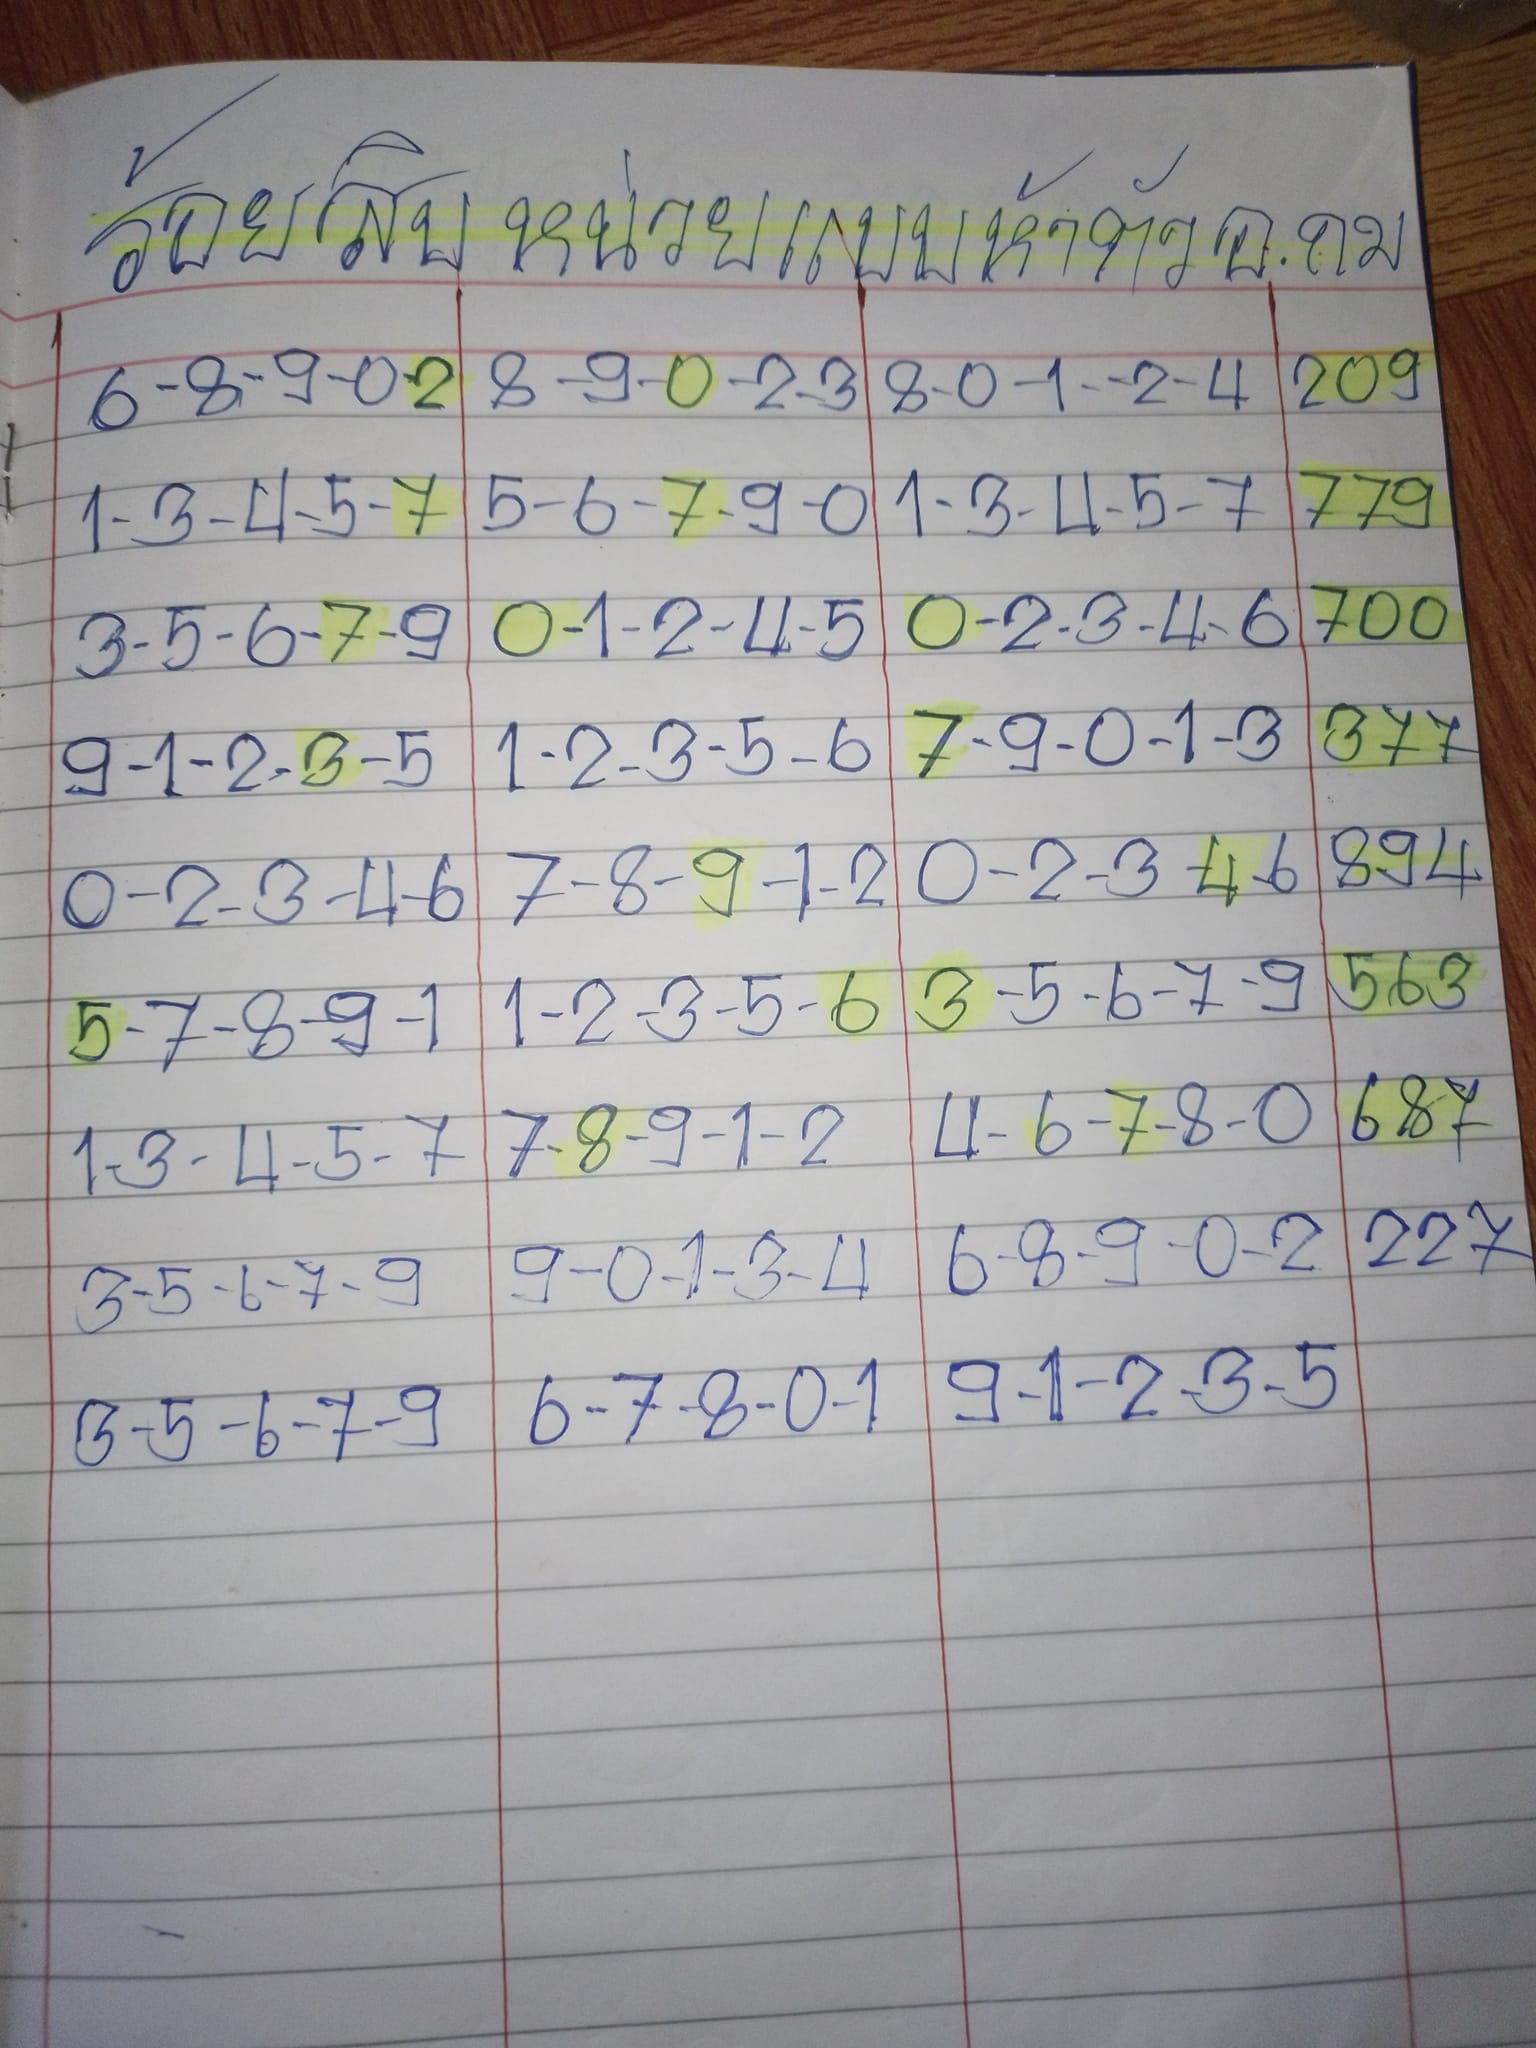 ร้อยสิบหน่วยแบบห้าตัวอ.ถม
6-8-9-0-2 8-9-0-2-3 8-0-1-2-4 209
1-3-4-5-7 5-6-7-9-0 1-3-4-5-7 779
3-5-6-7-9 0-1-2-4-5 0-2-3-4-6 700
9-1-2-3-5 1-2-3-5-6 7-9-0-1-3 377
0-2-3-4-6 7-8-9-1-2 0-2-3 4-6 894
5-7-8-9-1 1-2-3-5-6 3-5-6-7-9 563
1-3-4-5-7 7-8-9-1-2 4-6-7-8-0 687
3-5-6-7-9 9-0-1-3-4 6-8-9-0-2 227
3-5-6-7-9 6-7-8-0-1 9-1-2-3-5